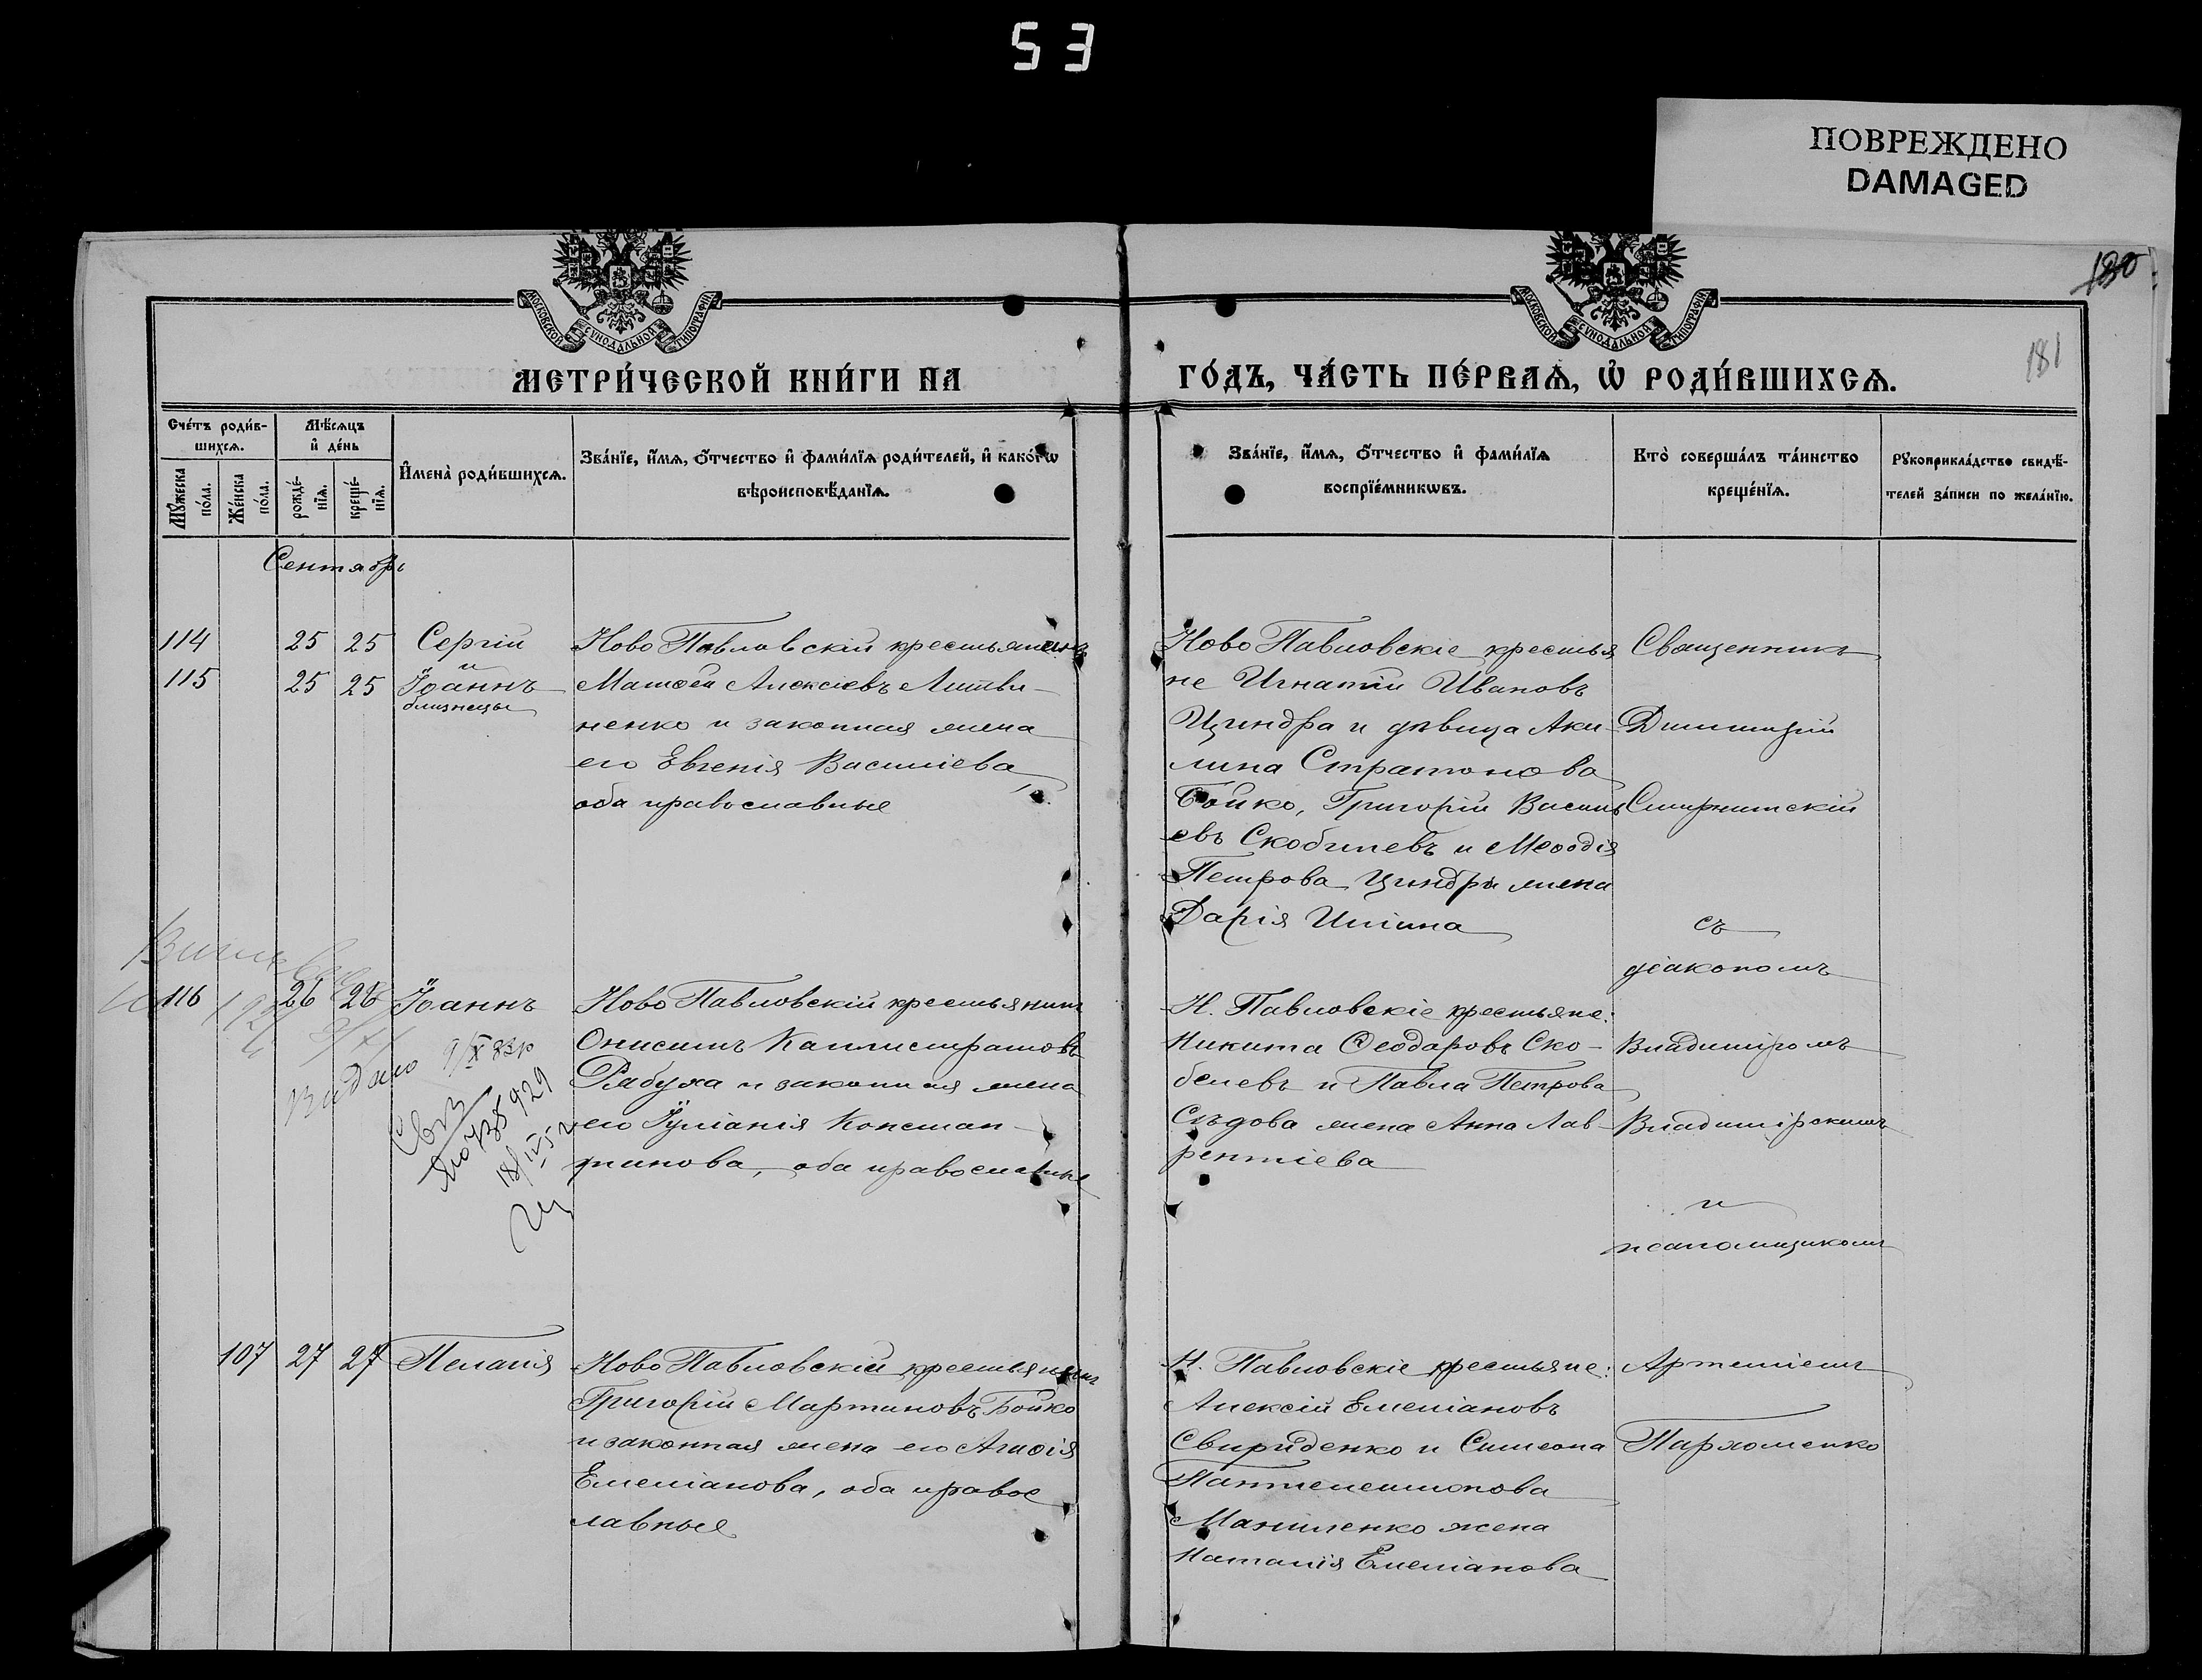 53
ПОВРЕЖДЕНО
DAMAGED
130
181
МОСКОВСКОЙ СѴНОДАЛЬНОЙ ТИПОГРАФІИ
МОСКОВСКОЙ СѴНОДАЛЬНОЙ ТИПОГРАФІИ
МЕТРИ́ЧЕСКОЙ КНИ́ГИ НА
ГО́ДЪ, ЧА́СТЬ ПЕ́РВАѦ, Ѡ҆ РОДИ́ВШИХСѦ.
Сче́тъ роди́в-
шихсѧ.
Мꙋ́жеска по́ла.
Же́нска по́ла.
Мѣ́сѧцъ
и҆ де́нь
рожде́-
нїѧ.
креще́-
нїѧ.
И҆мена̀ роди́вшихсѧ.
Зва́нїе, и҆́мѧ, ѻ҆́тчество и҆ фами́лїѧ роди́телей, и҆ како́гѡ
вѣроисповѣ́данїѧ.
Зва́нїе, и҆́мѧ, ѻ҆́тчество и҆ фами́лїѧ
воспрїе́мникѡвъ.
Кто̀ соверша́лъ та́инство
креще́нїѧ.
Рꙋкоприкла́дство свидѣ́-
телей за́писи по жела́нїю.
Сентябрь
114 25 25 Сергій
и
115 25 25 Іоаннъ
близнецы
Ново Павловскій крестьянинъ
Матѳей Алексіевъ Литви-
ненко и законная жена
его Евгенія Василіева
оба православные
Ново Павловскіе крестья
не Игнатій Ивановъ
Циндра и дѣвица Аки-
лина Стратонова
Бойко, Григорій Василь
евъ Скобелевъ и Меѳодія
Петрова Циндры жена
Дарія Иліина
Священникъ
Димитрій
Смирнитскій
съ
діакономъ
116 26 26 Іоаннъ
Видано
18/IV 5
Ново Павловскій крестьянинъ
Онисимъ Каллистратовъ
Рябуха и законная жена
его Іуліанія Констан-
тинова, оба православные
Н. Павловскіе крестьяне:
Никита Ѳеодоровъ Ско-
белевъ и Павла Петрова
Сѣдова жена Анна Лав-
рентіева
Владиміромъ
Владимірскимъ
и
псаломщикомъ
107 27 27 Пелагія
Ново Павловскій крестьянинъ
Григорій Мартиновъ Бойко
и законная жена его Агаѳія
Емеліанова, оба правос
лавные
Н. Павловскіе крестьяне:
Алексій Емеліановъ
Свириденко и Симеона
Пантелеимонова
Маниленко жена
Наталія Емеліанова
Артеміемъ
Пархоменко